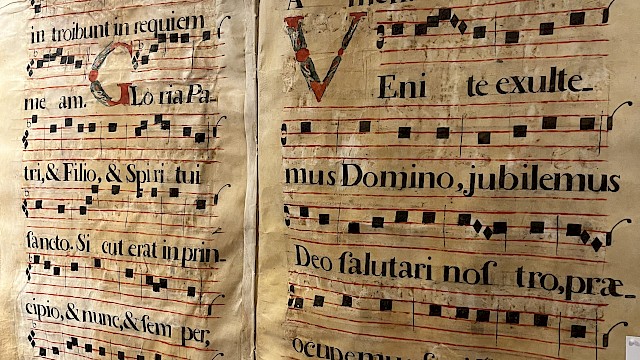 in troibunt in requiem
me am. GLo ria Pa-
tri, & Filio, & Spi ri tui
ſancto. Si cut erat in prin-
cipio, & nunc, & ſem per,
A
VEni te exulte-
mus Domino, jubilemus
Deo ſalutari noſ tro, præ-
ocupemus